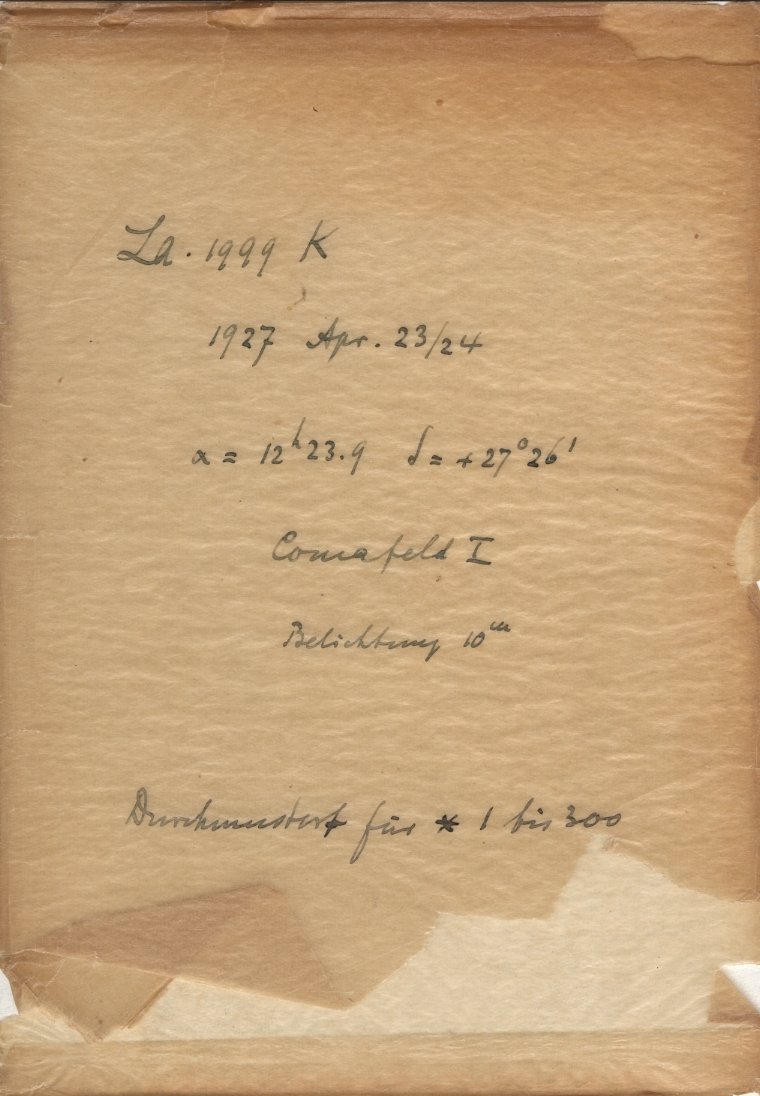 La. 1999 K
1927 Apr. 23/24
α = 12ʰ23.9 δ = +27°26'
Comafeld I
Belichtung 10ᵐ
Durchmustert für * 1 bis 300